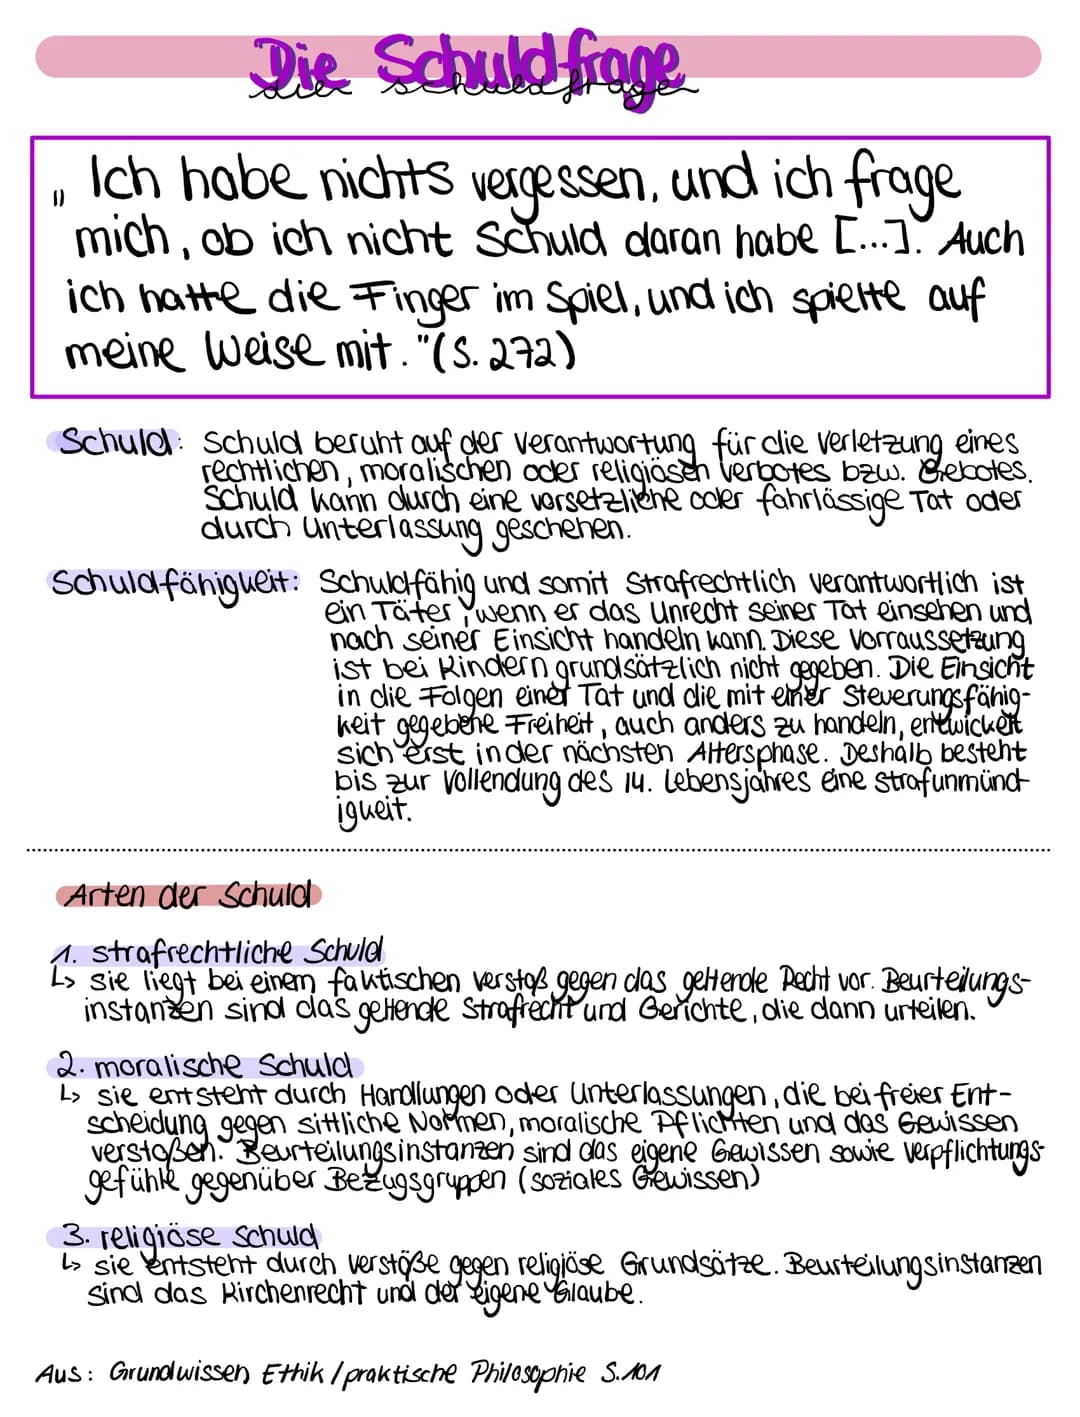 Die Schuldfrage
die schuldfrage
„Ich habe nichts vergessen, und ich frage
mich, ob ich nicht Schuld daran habe [...]. Auch
ich hatte die Finger im Spiel, und ich spielte auf
meine Weise mit."(S. 272)
Schuld: Schuld beruht auf der Verantwortung für die Verletzung eines
rechtlichen, moralischen oder religiösen Verbotes bzw. Gebotes.
Schuld kann durch eine vorsetzliche oder fahrlässige Tat oder
durch Unterlassung geschehen.
Schuldfähigkeit: Schuldfähig und somit Strafrechtlich verantwortlich ist
ein Täter, wenn er das Unrecht seiner Tat einsehen und
nach seiner Einsicht handeln kann. Diese Vorraussetzung
ist bei Kindern grundsätzlich nicht gegeben. Die Einsicht
in die Folgen einer Tat und die mit einer Steuerungsfähig-
keit gegebene Freiheit, auch anders zu handeln, entwickelt
sich erst in der nächsten Altersphase. Deshalb besteht
bis zur Vollendung des 14. Lebensjahres eine strafunmünd-
igkeit.
Arten der Schuld
1. strafrechtliche Schuld
↳ sie liegt bei einem faktischen verstoß gegen das geltende Recht vor. Beurteilungs-
instanzen sind das geltende Strafrecht und Gerichte, die dann urteilen.
2. moralische Schuld
↳ sie entsteht durch Handlungen oder Unterlassungen, die bei freier Ent-
scheidung gegen sittliche Normen, moralische Pflichten und das Gewissen
verstoßen. Beurteilungsinstanzen sind das eigene Gewissen sowie Verpflichtungs-
gefühle gegenüber Bezugsgruppen (soziales Gewissen)
3. religiöse Schuld
↳ sie entsteht durch verstöße gegen religiöse Grundsätze. Beurteilungsinstanzen
sind das Kirchenrecht und der eigene Glaube.
Aus: Grundwissen Ethik / praktische Philosophie S.101